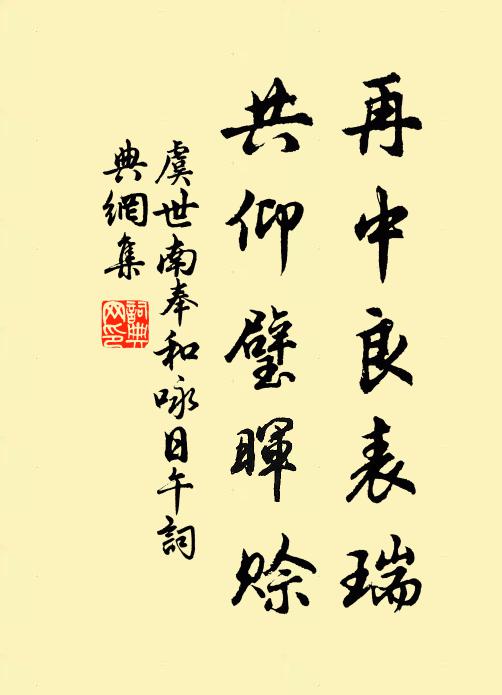 再中良表瑞
共仰璧暉賒
虞世南奉和咏日午詞
典網集
詞典
网印